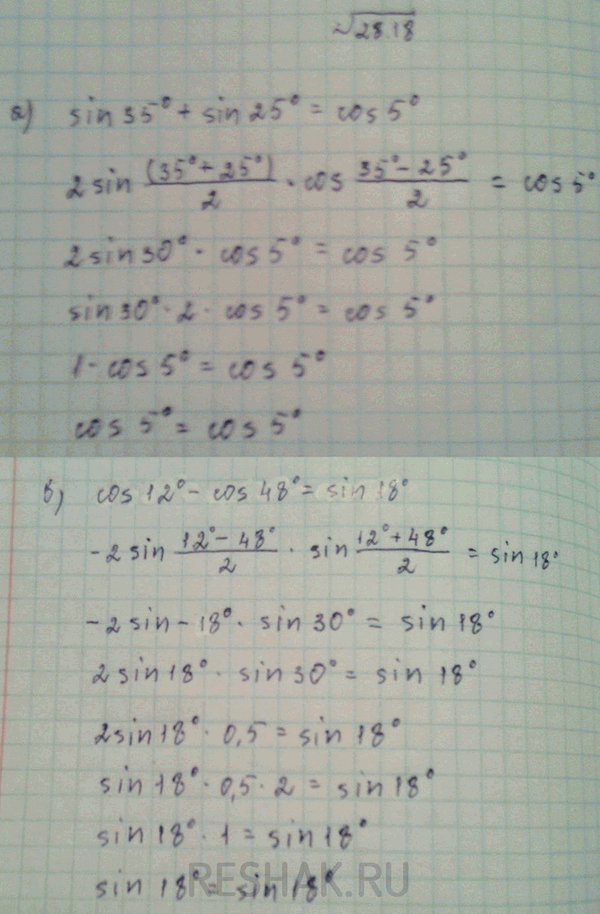 √28.18
а) sin 35° + sin 25° = cos 5°
2 sin (35° + 25°)/2 · cos (35° - 25°)/2 = cos 5°
2 sin 30° · cos 5° = cos 5°
sin 30° · 2 · cos 5° = cos 5°
1 · cos 5° = cos 5°
cos 5° = cos 5°
б) cos 12° - cos 48° = sin 18°
-2 sin (12° - 48°)/2 · sin (12° + 48°)/2 = sin 18°
-2 sin - 18° · sin 30° = sin 18°
2 sin 18° · sin 30° = sin 18°
2 sin 18° · 0,5 = sin 18°
sin 18° · 0,5 · 2 = sin 18°
sin 18° · 1 = sin 18°
sin 18° = sin 18°
RESHAK.RU